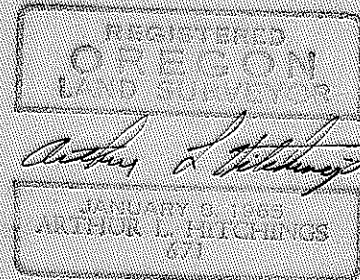 REGISTERED
OREGON
LAND SURVEYOR
Arthur L Hitchings
JANUARY 8 1965
ARTHUR L. HITCHINGS
671